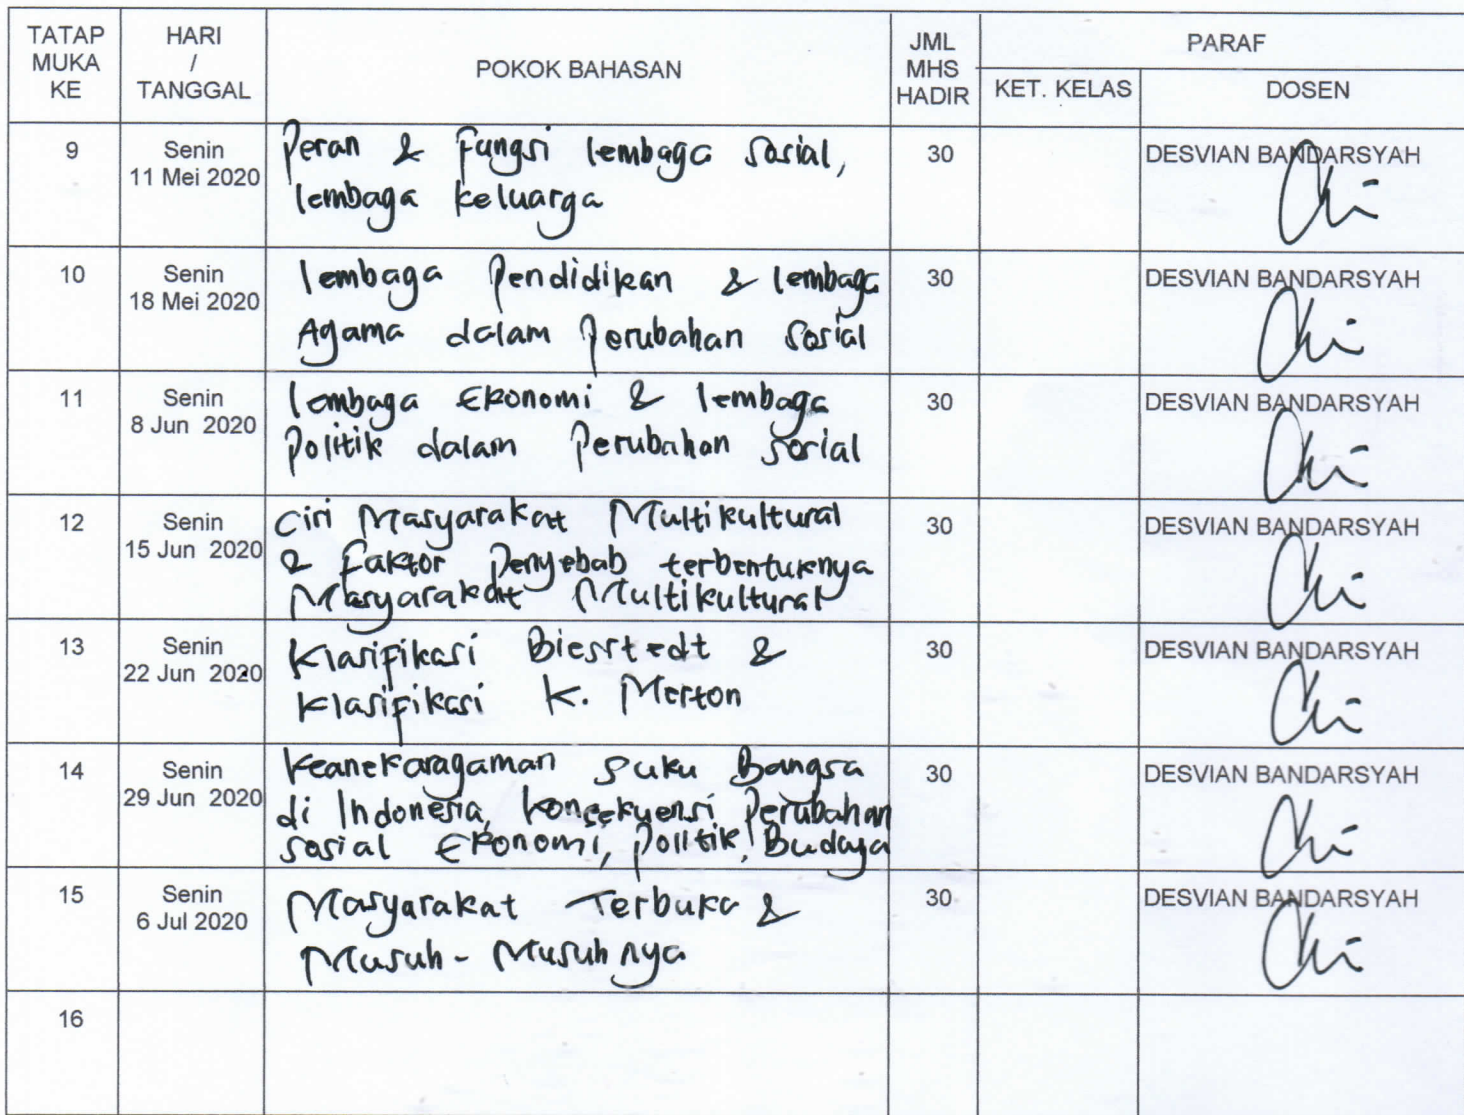 TATAP MUKA KE
HARI / TANGGAL
POKOK BAHASAN
JML MHS HADIR
PARAF
KET. KELAS
DOSEN
9
Senin
11 Mei 2020
Peran & Fungsi lembaga Sosial,
lembaga keluarga
30
DESVIAN BANDARSYAH
10
Senin
18 Mei 2020
lembaga Pendidikan & lembaga
Agama dalam Perubahan Sosial
30
DESVIAN BANDARSYAH
11
Senin
8 Jun 2020
lembaga Ekonomi & lembaga
Politik dalam Perubahan Sosial
30
DESVIAN BANDARSYAH
12
Senin
15 Jun 2020
Ciri Masyarakat Multikultural
& Faktor Penyebab terbentuknya
Masyarakat Multikultural
30
DESVIAN BANDARSYAH
13
Senin
22 Jun 2020
Klasifikasi Bierstedt &
Klasifikasi K. Merton
30
DESVIAN BANDARSYAH
14
Senin
29 Jun 2020
Keanekaragaman Suku Bangsa
di Indonesia, konsekuensi Perubahan
sosial Ekonomi, Politik, Budaya
30
DESVIAN BANDARSYAH
15
Senin
6 Jul 2020
Masyarakat Terbuka &
Musuh-Musuhnya
30
DESVIAN BANDARSYAH
16